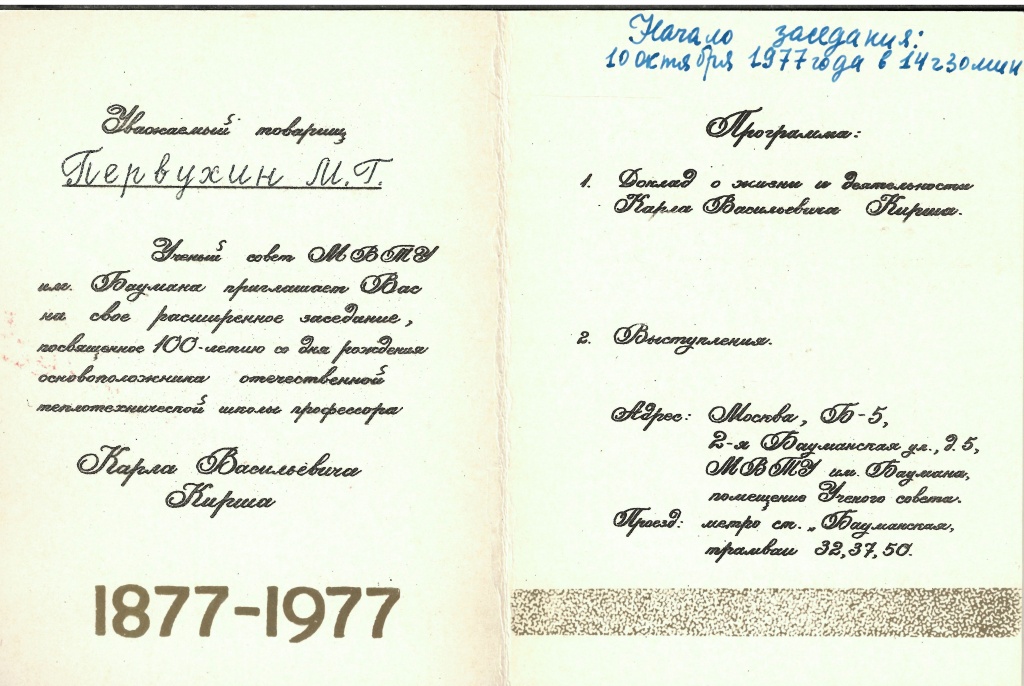 Уважаемый товарищ
Первухин М.Г.
Ученый совет МВТУ
им. Баумана приглашает Вас
на свое расширенное заседание,
посвященное 100-летию со дня рождения
основоположника отечественной
теплотехнической школы профессора
Карла Васильевича
Кирша
1877-1977
Начало заседания:
10 октября 1977 года в 14 г 30 мин
Программа:
1. Доклад о жизни и деятельности
Карла Васильевича Кирша.
2. Выступления.
Адрес: Москва, Б-5,
2-я Бауманская ул., д.5,
МВТУ им. Баумана,
помещение Ученого совета.
Проезд: метро ст. „Бауманская,
трамваи 32,37,50.